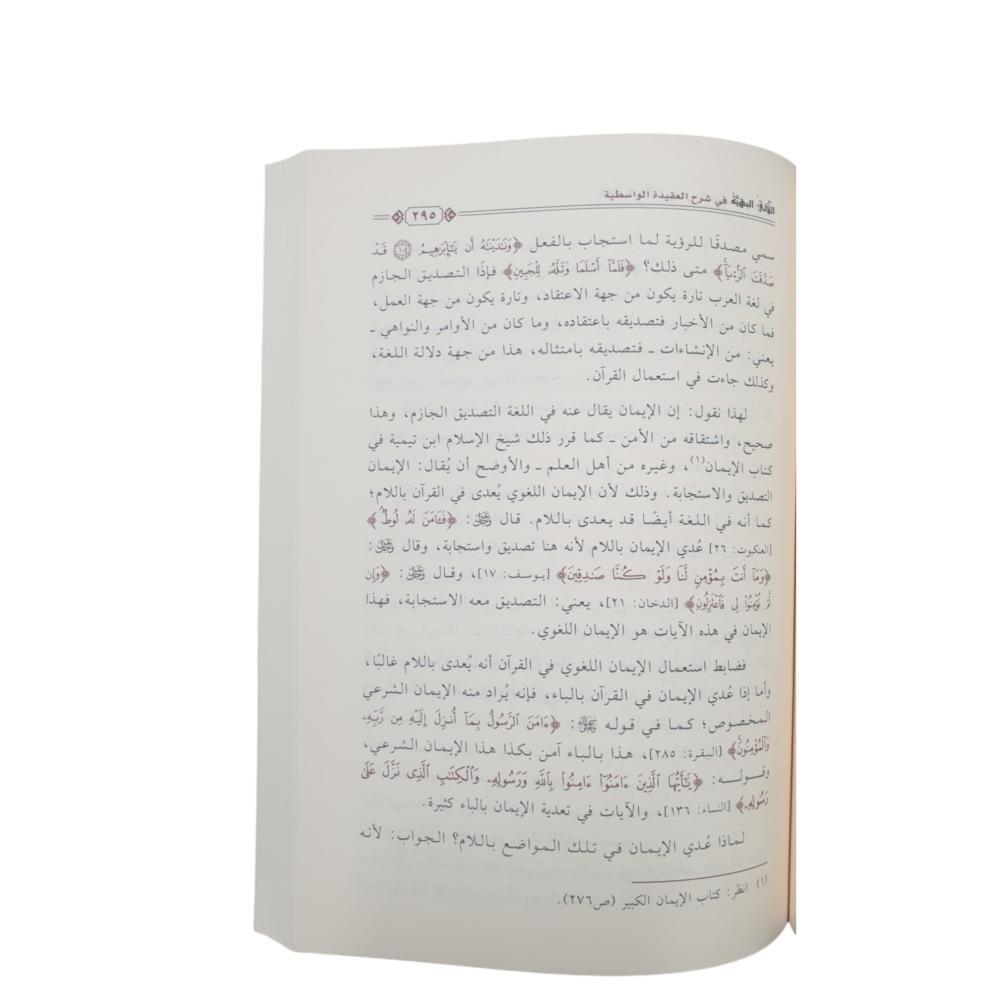 اللآلئ البهية في شرح العقيدة الواسطية
٢٩٥
سمي مصدقًا للرؤية لما استجاب بالفعل ﴿وَنَٰدَيْنَٰهُ أَن يَٰٓإِبْرَٰهِيمُ ١٠٤ قَدْ
صَدَّقْتَ ٱلرُّءْيَآ﴾ متى ذلك؟ ﴿فَلَمَّآ أَسْلَمَا وَتَلَّهُۥ لِلْجَبِينِ﴾ فإذًا التصديق الجازم
في لغة العرب تارة يكون من جهة الاعتقاد، وتارة يكون من جهة العمل،
فما كان من الأخبار فتصديقه باعتقاده، وما كان من الأوامر والنواهي ـ
يعني: من الإنشاءات ـ فتصديقه بامتثاله، هذا من جهة دلالة اللغة،
وكذلك جاءت في استعمال القرآن.
لهذا نقول: إن الإيمان يقال عنه في اللغة التصديق الجازم، وهذا
صحيح، واشتقاقه من الأمن ـ كما قرر ذلك شيخ الإسلام ابن تيمية في
كتاب الإيمان(١)، وغيره من أهل العلم ـ والأوضح أن يُقال: الإيمان
التصديق والاستجابة. وذلك لأن الإيمان اللغوي يُعدى في القرآن باللام؛
كما أنه في اللغة أيضًا قد يعدى باللام. قال ﷿: ﴿فَـَٔامَنَ لَهُۥ لُوطٌ﴾
[العنكبوت: ٢٦] عُدي الإيمان باللام لأنه هنا تصديق واستجابة، وقال ﷿:
﴿وَمَآ أَنتَ بِمُؤْمِنٍ لَّنَا وَلَوْ كُنَّا صَٰدِقِينَ﴾ [يوسف: ١٧]، وقال ﷿: ﴿وَإِن
لَّمْ تُؤْمِنُوا۟ لِى فَٱعْتَزِلُونِ﴾ [الدخان: ٢١]، يعني: التصديق معه الاستجابة، فهذا
الإيمان في هذه الآيات هو الإيمان اللغوي.
فضابط استعمال الإيمان اللغوي في القرآن أنه يُعدى باللام غالبًا،
وأما إذا عُدي الإيمان في القرآن بالباء، فإنه يُراد منه الإيمان الشرعي
المخصوص؛ كما في قوله: ﴿ءَامَنَ ٱلرَّسُولُ بِمَآ أُنزِلَ إِلَيْهِ مِن رَّبِّهِۦ
وَٱلْمُؤْمِنُونَ﴾ [البقرة: ٢٨٥]، هذا بالباء آمن بكذا هذا الإيمان الشرعي،
وقوله: ﴿يَٰٓأَيُّهَا ٱلَّذِينَ ءَامَنُوٓا۟ ءَامِنُوا۟ بِٱللَّهِ وَرَسُولِهِۦ وَٱلْكِتَٰبِ ٱلَّذِى نَزَّلَ عَلَىٰ
رَسُولِهِۦ﴾ [النساء: ١٣٦]، والآيات في تعدية الإيمان بالباء كثيرة.
لماذا عُدي الإيمان في تلك المواضع باللام؟ الجواب: لأنه
(١) انظر: كتاب الإيمان الكبير (ص٢٧٦).